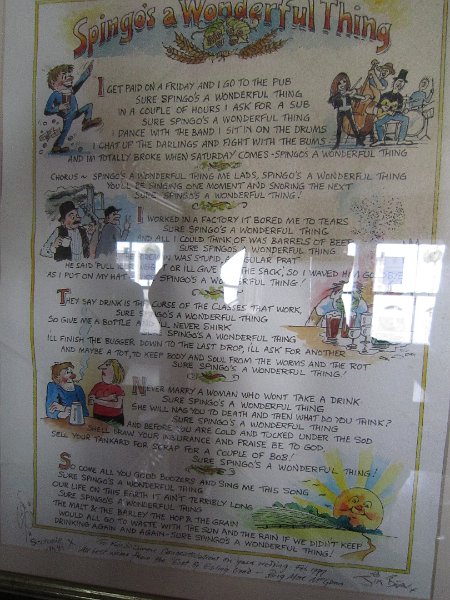 Spingo's a Wonderful Thing
I GET PAID ON A FRIDAY AND I GO TO THE PUB
SURE SPINGO'S A WONDERFUL THING
IN A COUPLE OF HOURS I ASK FOR A SUB
SURE SPINGO'S A WONDERFUL THING
I DANCE WITH THE BAND I SIT IN ON THE DRUMS
I CHAT UP THE DARLINGS AND FIGHT WITH THE BUMS
AND IM TOTALLY BROKE WHEN SATURDAY COMES - SPINGOS A WONDERFUL THING
CHORUS ~ SPINGO'S A WONDERFUL THING ME LADS, SPINGO'S A WONDERFUL THING
YOU'LL BE SINGING ONE MOMENT AND SNORING THE NEXT
SURE SPINGO'S A WONDERFUL THING!
I WORKED IN A FACTORY IT BORED ME TO TEARS
SURE SPINGO'S A WONDERFUL THING
AND ALL I COULD THINK OF WAS BARRELS OF BEER
SURE SPINGO'S A WONDERFUL THING
WAS STUPID, A PRAT
HE SAID PULL OR ILL GIVE THE SACK, SO I WAVED HIM
AS I PUT ON MY HAT SPINGO'S A WONDERFUL THING!
THEY SAY DRINK IS THE CURSE OF THE CLASSES THAT WORK,
SURE SPINGO'S A WONDERFUL THING
SO GIVE ME A BOTTLE NEVER SHIRK
SPINGO'S A WONDERFUL THING
I'LL FINISH THE BUGGER DOWN TO THE LAST DROP, I'LL ASK FOR ANOTHER
AND MAYBE A TOT, TO KEEP BODY AND SOUL FROM THE WORMS AND THE ROT
SURE SPINGO'S A WONDERFUL THING!
NEVER MARRY A WOMAN WHO WONT TAKE A DRINK
SURE SPINGO'S A WONDERFUL THING
SHE WILL NAG YOU TO DEATH AND THEN WHAT DO YOU THINK?
SURE SPINGO'S A WONDERFUL THING
AND BEFORE YOU ARE COLD AND TUCKED UNDER THE SOD
SHE'LL DRAW YOUR INSURANCE AND PRAISE BE TO GOD
SELL YOUR TANKARD FOR SCRAP FOR A COUPLE OF BOB!
SURE SPINGO'S A WONDERFUL THING!
SO COME ALL YOU GOOD BOOZERS AND SING ME THIS SONG
SURE SPINGO'S A WONDERFUL THING
OUR LIFE ON THIS EARTH IT AIN'T TERRIBLY LONG
SURE SPINGO'S A WONDERFUL THING
THE MALT & THE BARLEY THE HOP & THE GRAIN
WOULD ALL GO TO WASTE WITH THE SUN AND THE RAIN IF WE DIDN'T KEEP
DRINKING AGAIN AND AGAIN - SURE SPINGO'S A WONDERFUL THING!